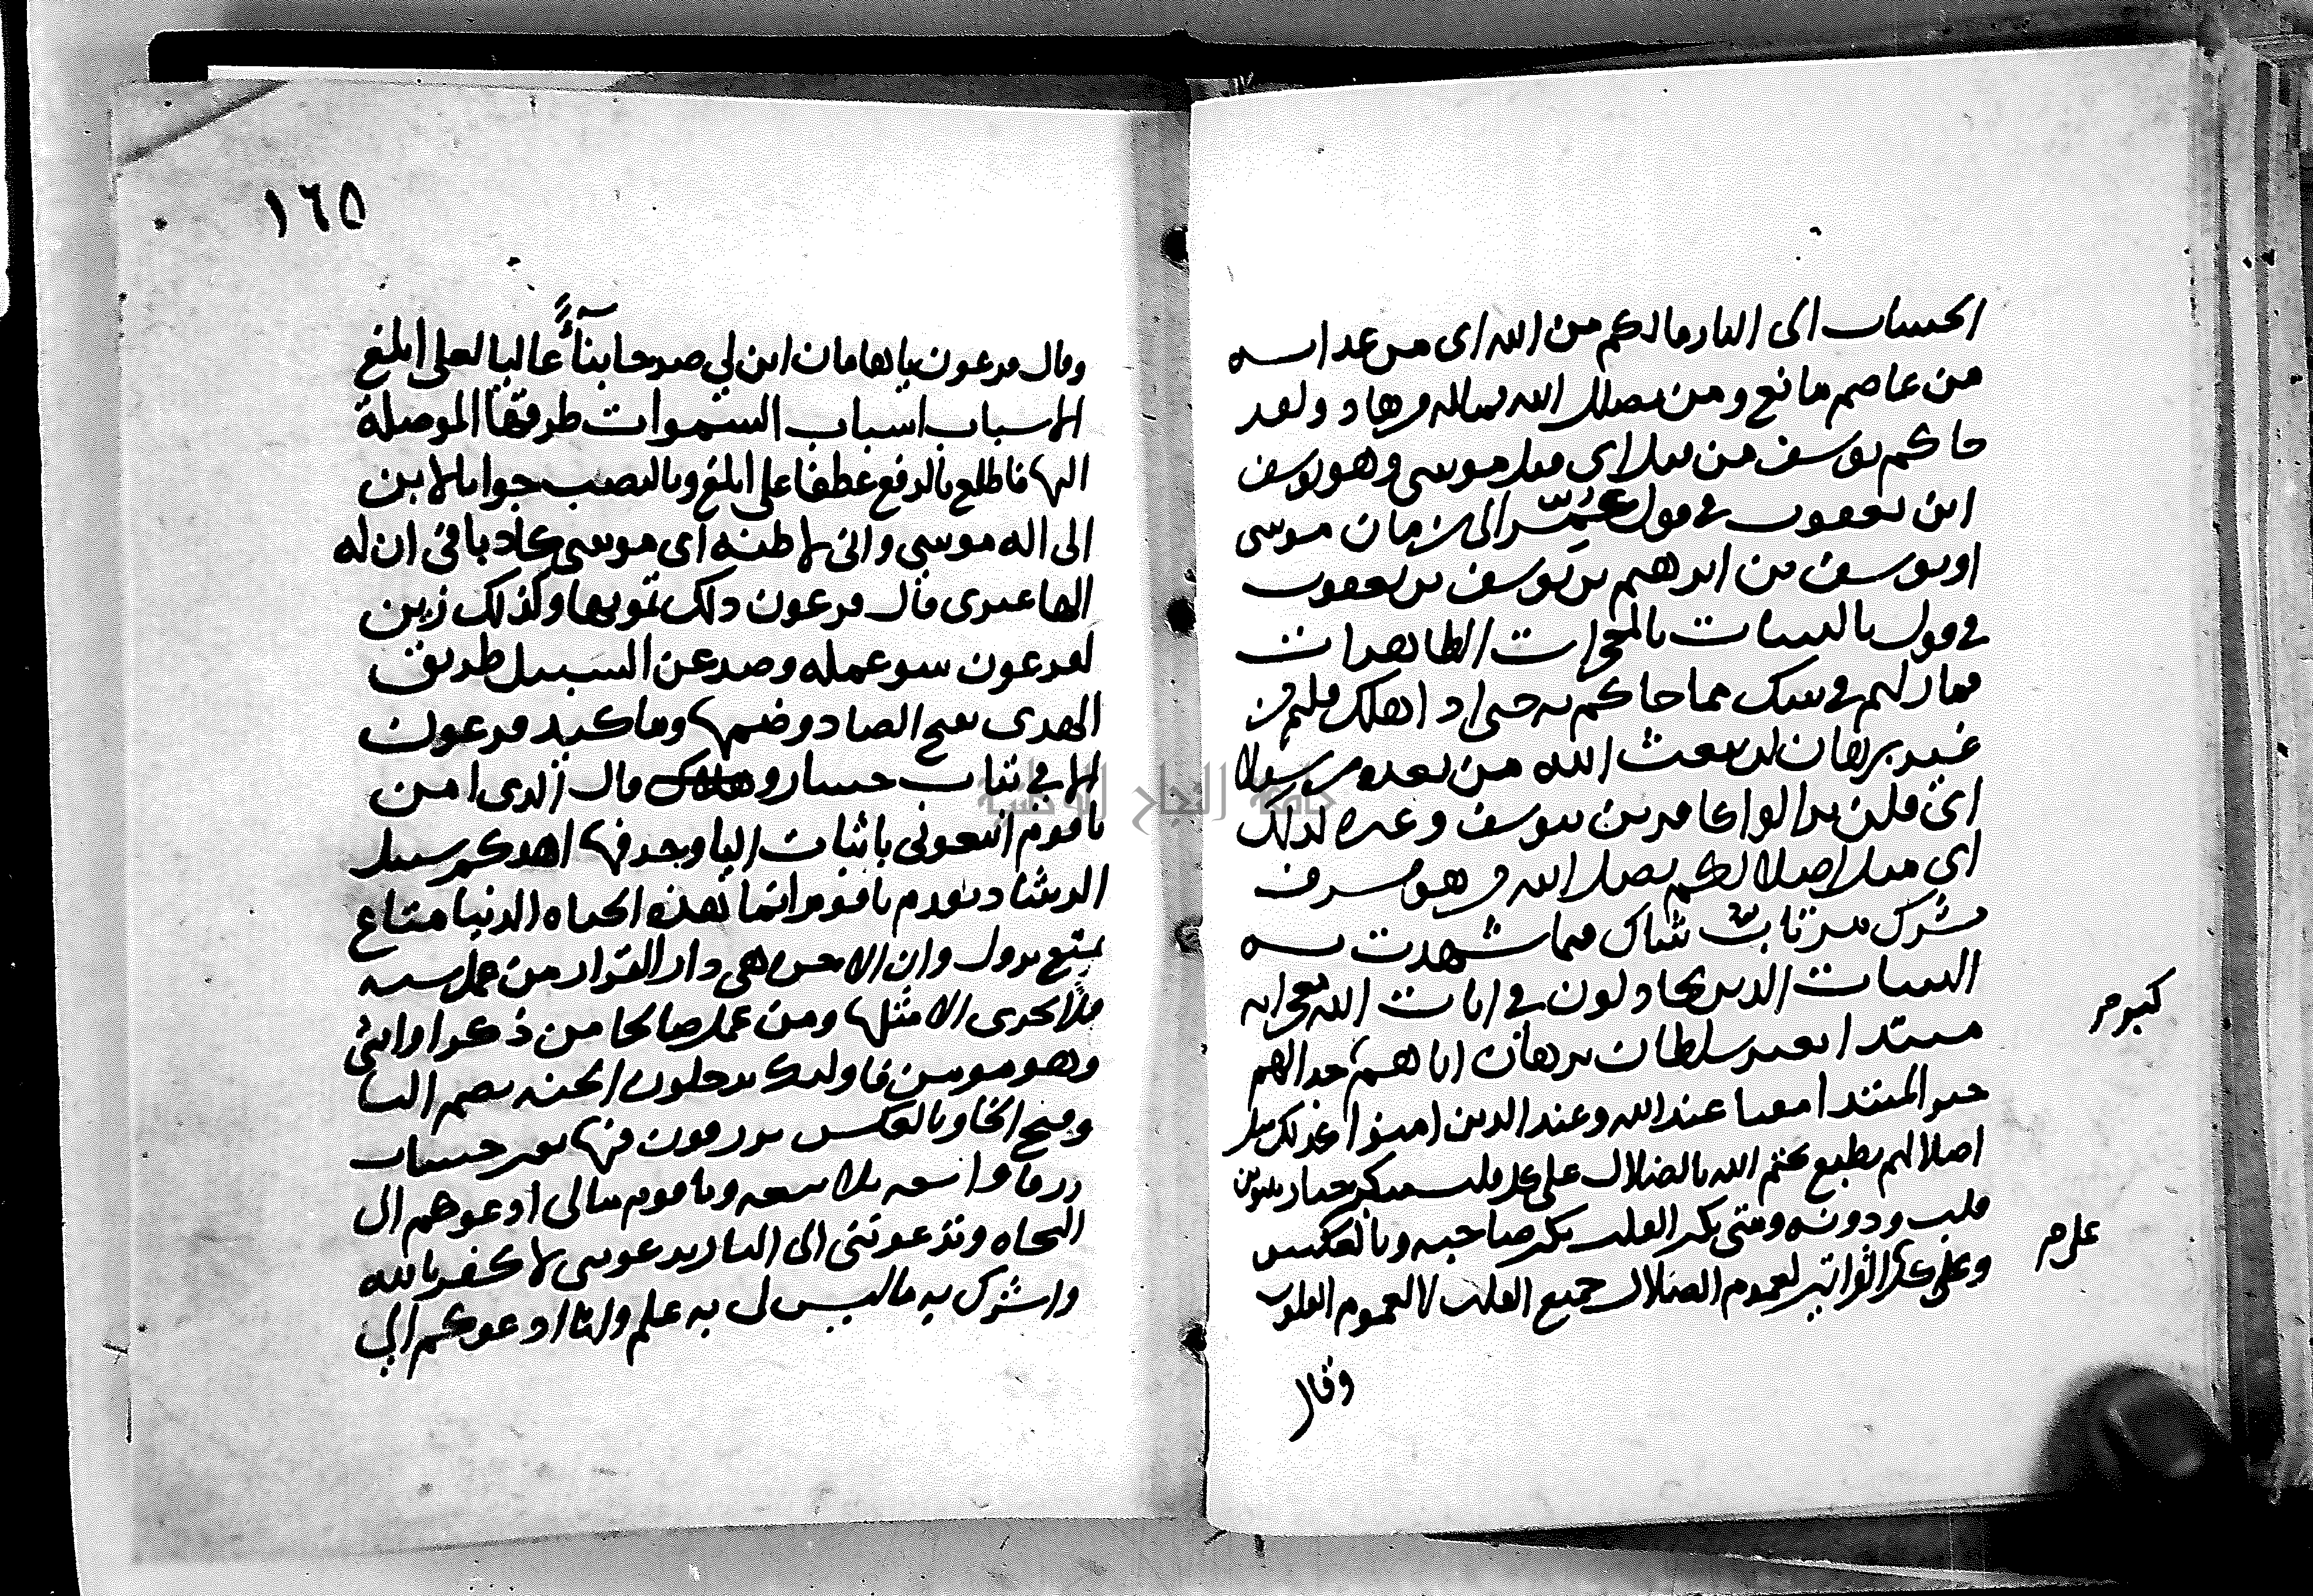 الحساب الى النار مالكم من الله اى من عذابه
من عاصم مانع ومن يضلل الله فماله من هاد ولقد
جاكم يوسف من قبل اى قبل موسى وهو يوسف
ابن يعقوب في قول عمر الى زمان موسى
او يوسف بن ابرهيم بن يوسف بن يعقوب
في قول بالبينات بالمعجزات الظاهرات
فمازلتم في شك مما جاكم به حتى اذا هلك قلتم من
غير برهان لن يبعث الله من بعده رسولا
اى فلن يزالوا كافرين بيوسف وغيره كذلك
اى مثل اضلالكم يضل الله من هو مسرف
مشرك مرتاب شاك فيما شهدت به
البينات الذين يجادلون في ايات الله معجزاته
مبتدا بغير سلطان برهان اتاهم كبر جدالهم
خبر المبتدا مقتا عند الله وعند الذين امنوا كذلك مثل
اضلالهم يطبع يختم الله بالضلال على كل قلب متكبر جبار بتنوين
قلب ودونه ومتى تكبر القلب تكبر صاحبه وبالعكس
وعلى كل القراتين لعموم الضلال جميع القلب لا لعموم القلوب
وقال
كبر م
على م
١٦٥
وقال فرعون ياهامان ابن لي صرحا بنآءً عاليا لعلى ابلغ
الاسباب اسباب السموات طرقها الموصلة
اليها فاطلع بالرفع عطفا على ابلغ وبالنصب جوابا لابن
الى اله موسى وانى لاظنه اى موسى كاذبا فى ان له
الها غيرى قال فرعون ذلك تمويها وكذلك زين
لفرعون سو عمله وصد عن السبيل طريق
الهدى بفتح الصاد وضمها وما كيد فرعون
الا في تباب خسار وهلاك وقال الذى امن
ياقوم اتبعونى باثبات اليا وبحذفها اهدكم سبيل
الرشاد تقدم ياقوم انما هذه الحياه الدنيا متاع
تمتع يزول وان الاخره هى دار القرار من عمل سيه
فلا يجزى الا مثلها ومن عمل صالحا من ذكر او انثى
وهو مومن فاوليك يدخلون الجنه بضم اليا
وفتح الخا وبالعكس يرزقون فيها بغير حساب
رزقا واسعه بلا تبعه وياقوم مالى ادعوكم الى
النجاه وتدعوننى الى النار تدعوننى لاكفر بالله
واشرك به ماليس لى به علم وانا ادعوكم الى
جامعة النجاح الوطنية